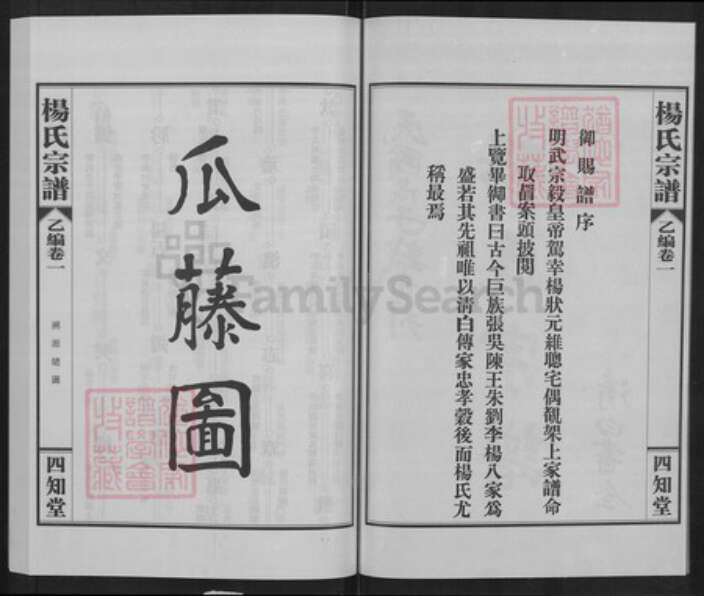 楊氏宗譜
乙編卷一
四知堂
御賜譜序
明武宗毅皇帝駕幸楊狀元維聰宅偶覩架上家譜命
取置案頭披閱
上覽畢御書曰古今巨族張吳陳王朱劉李楊八家爲
盛若其先祖唯以清白傳家忠孝穀後而楊氏尤
稱最焉
瓜藤圖
楊氏宗譜
乙編卷一
四知堂
FamilySearch